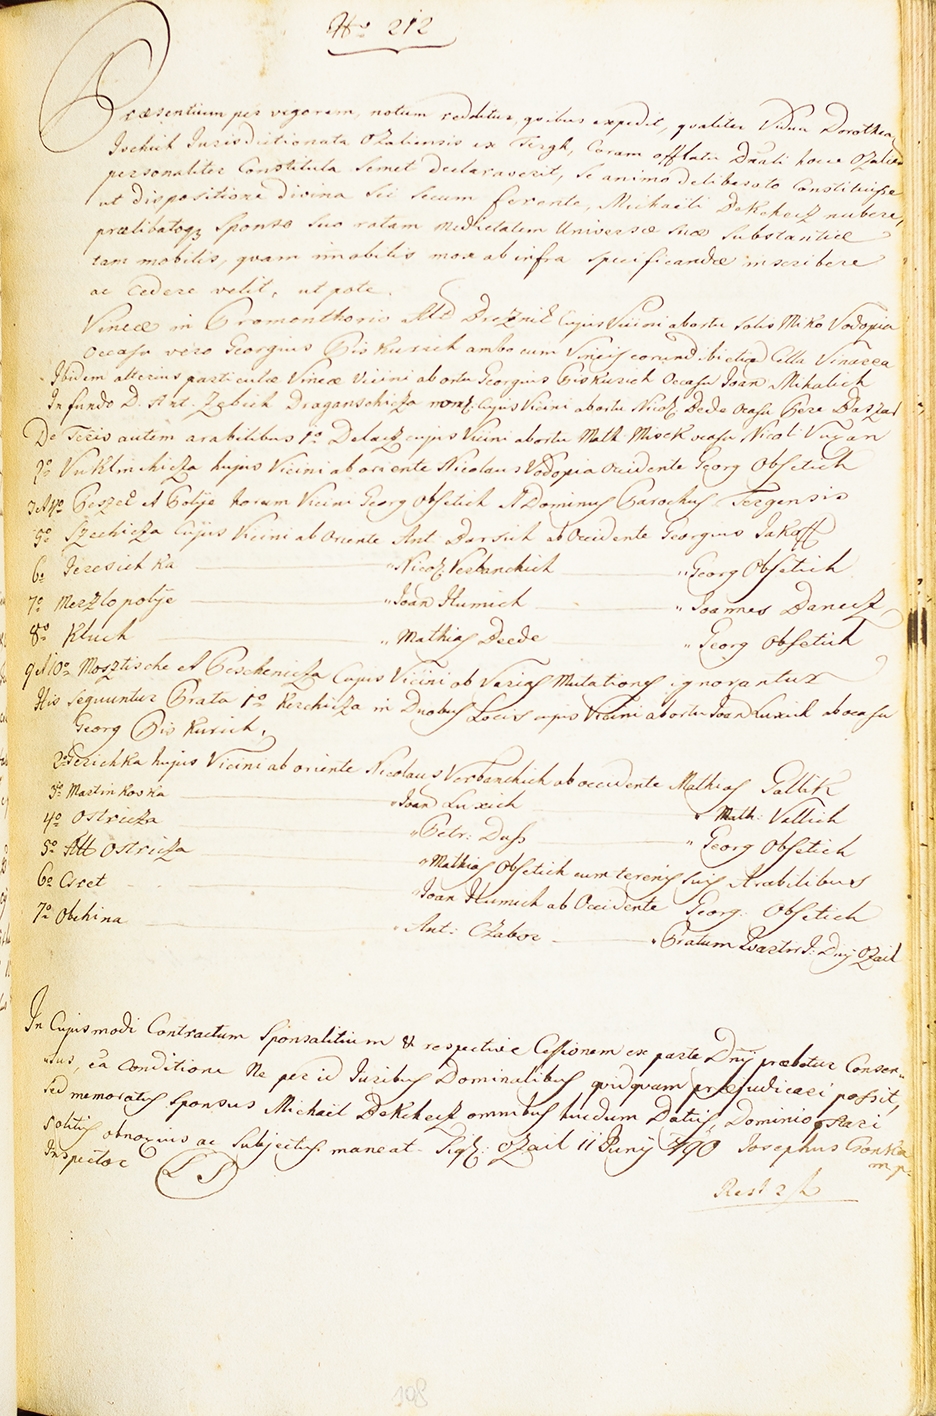 No 212
Præsentium per vigorem, notum redditur, quibus expedit, qualiter Vidua Dorothea
Jschich Jurisdictionata Ozaliensis ex Tergh, Coram offlatu Dnali hocce Ozalien
personaliter Constituta Semet declaraverit, se animo deliberato Constituisse
ut dispositione divina Sic Secum ferente, Michaeli Dekhecz nubere,
prælibatoq3 Sponso Suo ratam medietatem Universæ Suæ Substantiæ
tam mobilis, quam imobilis mox ab infra Specificandæ inscribere
ac Cedere velit, ut pote.
Vineæ in Promonthorio Dreznik Cujus Vicini ab ortu Solis Miko Vodopia
Occasu vero Georgius Piskurich ambo cum Vineis earund. ibi aliud Cella Vinacea
Ibidem alterius particulæ Vineæ Vicini ab ortu Georgius Piskurich Occasu Joan Mihalich
In fundo D. Ant. Zebich Draganschicza nom: Cujus Vicini ab ortu Nicol Dede Ocasu Pere Daszar
De Terris autem arabilibus 1o Delacz cujus Vicini ab ortu Math Misck ocasu Nicol Vugan
2o Vuklinchicza hujus Vicini ab oriente Nicolaus Vodopia Occidente Georg Obsetich
3 et 4o Peszek et Polye horum Vicini Georg Obsetich et Dominus Parochus Tergensis
5o Szechicza Cujus Vicini ab Oriente Ant Darsich ab Occidente Georgius Jakoff
6o Jezesichka " Nicol Verbanchich " Georg Obsetich
7o Merzlopolye " Joan Humich " Joannes Danecz
8o Kluch " Mathias Deede " Georg Obsetich
9 et 10o Mosztische et Peschenicza Cujus Vicini ob Varias Mutationes ignorantur
His Sequuntur Prata 1o Kerchicza in Duobus Locis cujus Vicini ab ortu Joan Luxich ab ocasu
Georg Piskurich,
2o Jerichka hujus Vicini ab oriente Nicolaus Verbanchich ab occidente Mathias Gallik
3o Martinkovka " Joan Luxich " Math: Vallich
4o Ostricza " Petr: Duss " Georg Obsetich
5o Ostricza " Mathias Obsetich cum terenis suis Arabilibus
6o Csret " Joan Humich ab Occidente Georg: Obsetich
7o Obchina " Ant: Czabor " Pratum I: Dny Ozail
In Cujusmodi Contractum Sponsalitium & respective Cessionem ex parte Dny præbetur Consen-
sus, ea Conditione Ne per id Juribus Dominalibus quidquam præjudicari possit,
Sed memoratus Sponsus Michael Dekhecz omnibus fundum Datis, Dominio præstari
Solitis obnoxius ac Subjectus maneat. Sig: Ozail 11 Junij 790 Josephus Gronka
Inspector L S mp
Rest 2 f
198